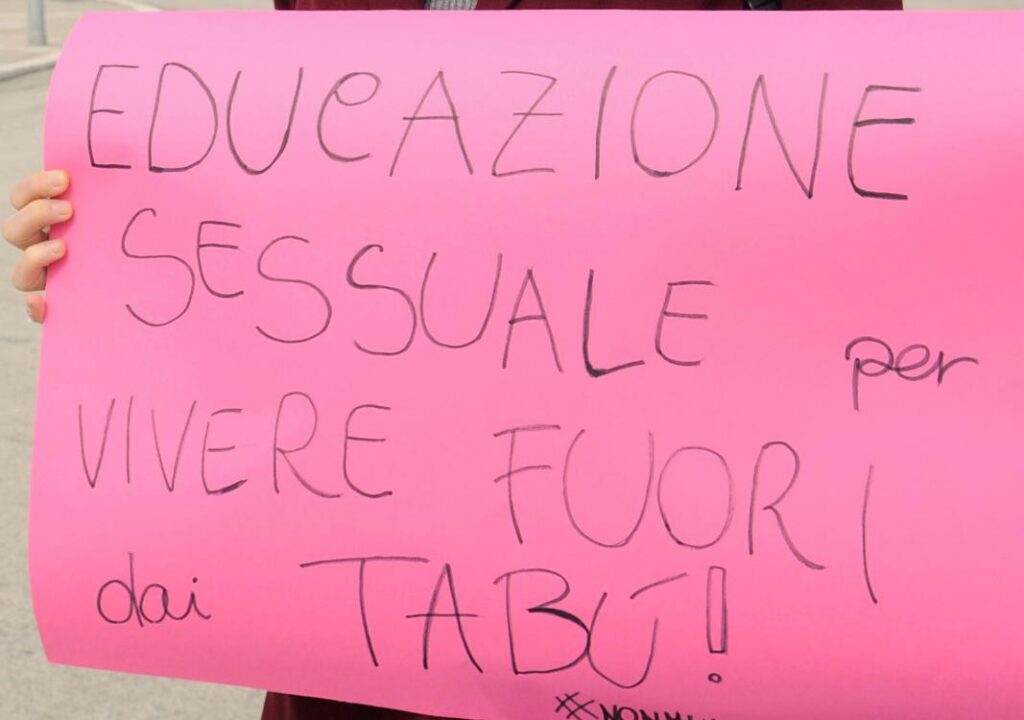 EDUCAZIONE
SESSUALE per
VIVERE FUORI
dai TABÚ!